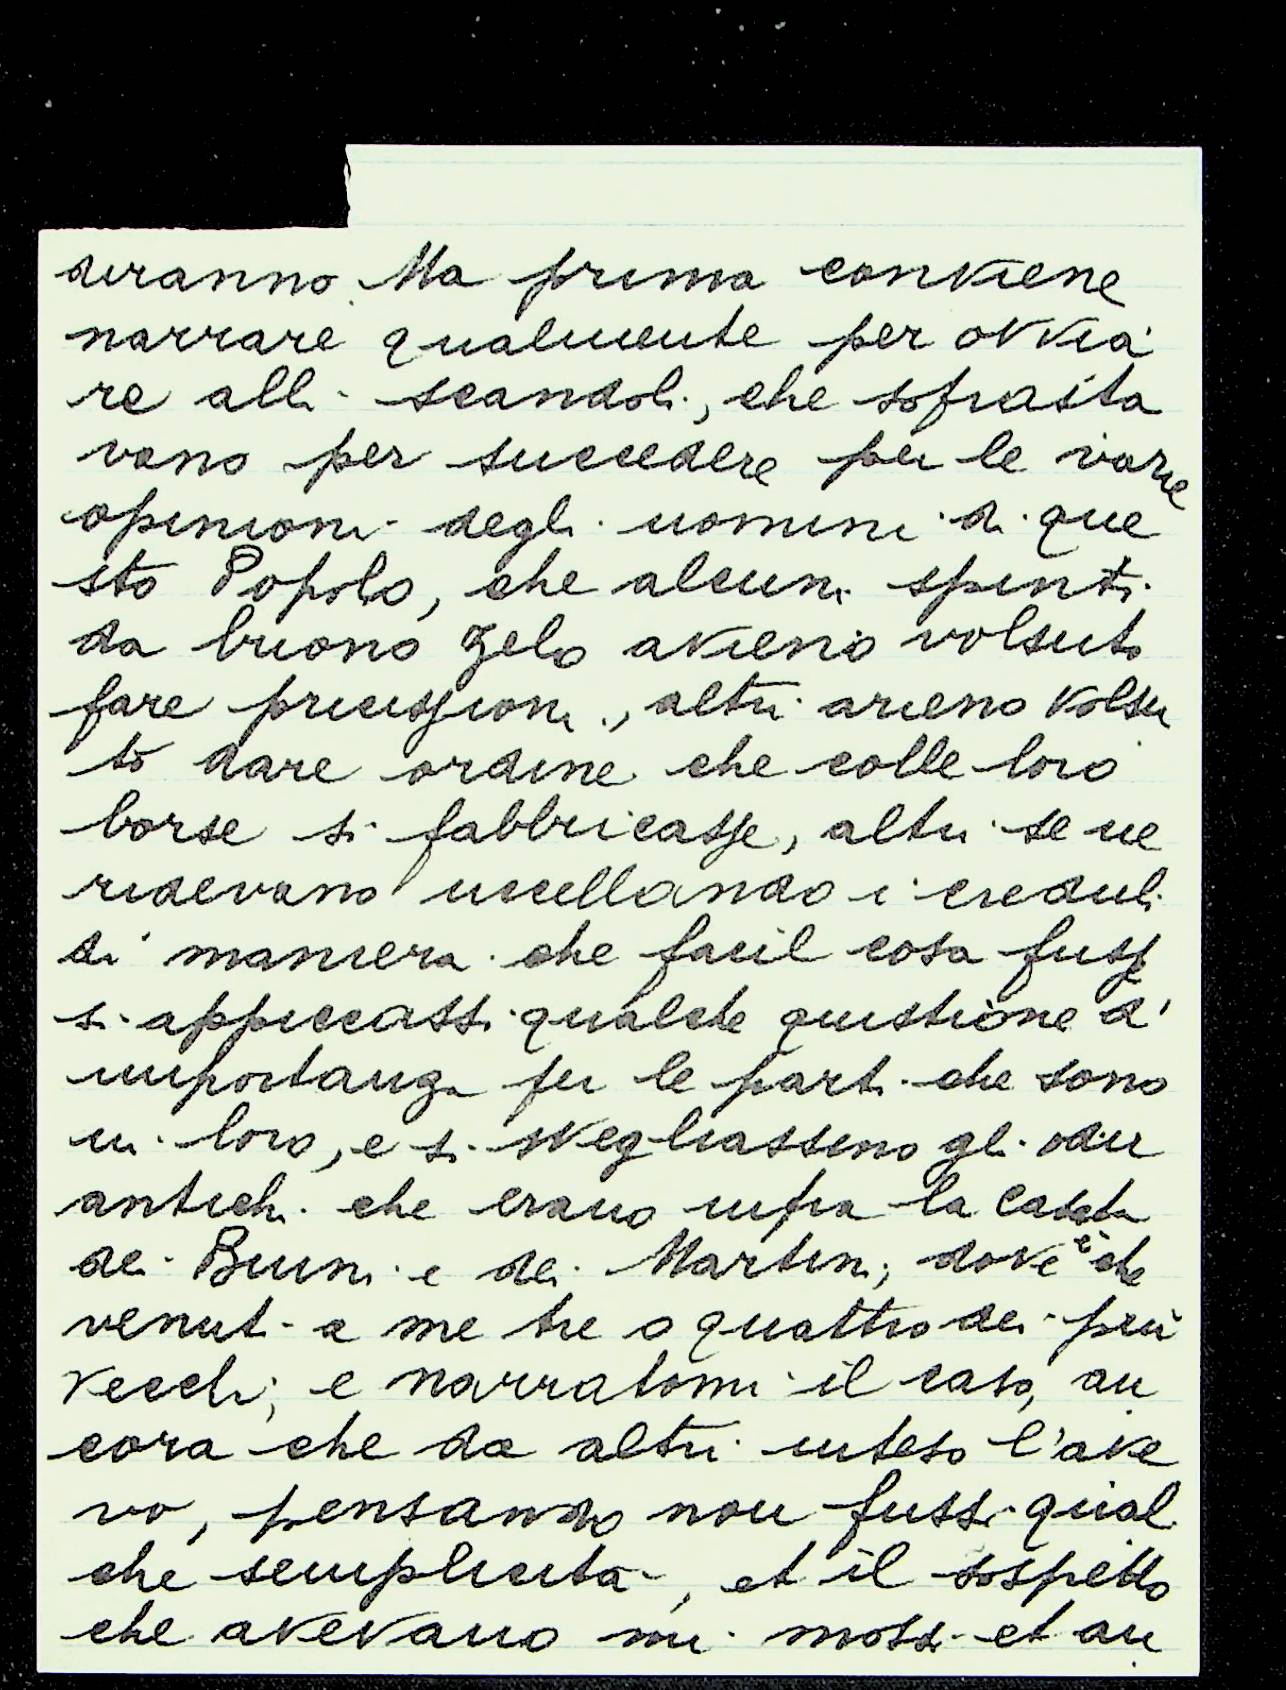 diranno. Ma prima conviene
narrare qualmente per ovvia
re alli scandoli, che soprasta
vano per succedere per le varie
opinioni degli uomini di que
sto Popolo, che alcuni spinti
da buono zelo avieno volsuto
fare precissioni, altri arieno volsu
to dare ordine che colle loro
borse si fabbricasse, altri se ne
ridevano uccellando i creduli
di maniera che facil cosa fusse
si appiccassi qualche questione d'
importanza per le parti che sono
in loro, e si svegliassino gli odii
antichi che erano infra la casata
dei Buini e dei Martini; dove è che
venuti a me tre o quattro dei più
vecchi; e narratomi il caso, an
cora che da altri inteso l'ave
vo, pensando non fussi qual
che semplicità, et il sospetto
che avevano mi mossi et an